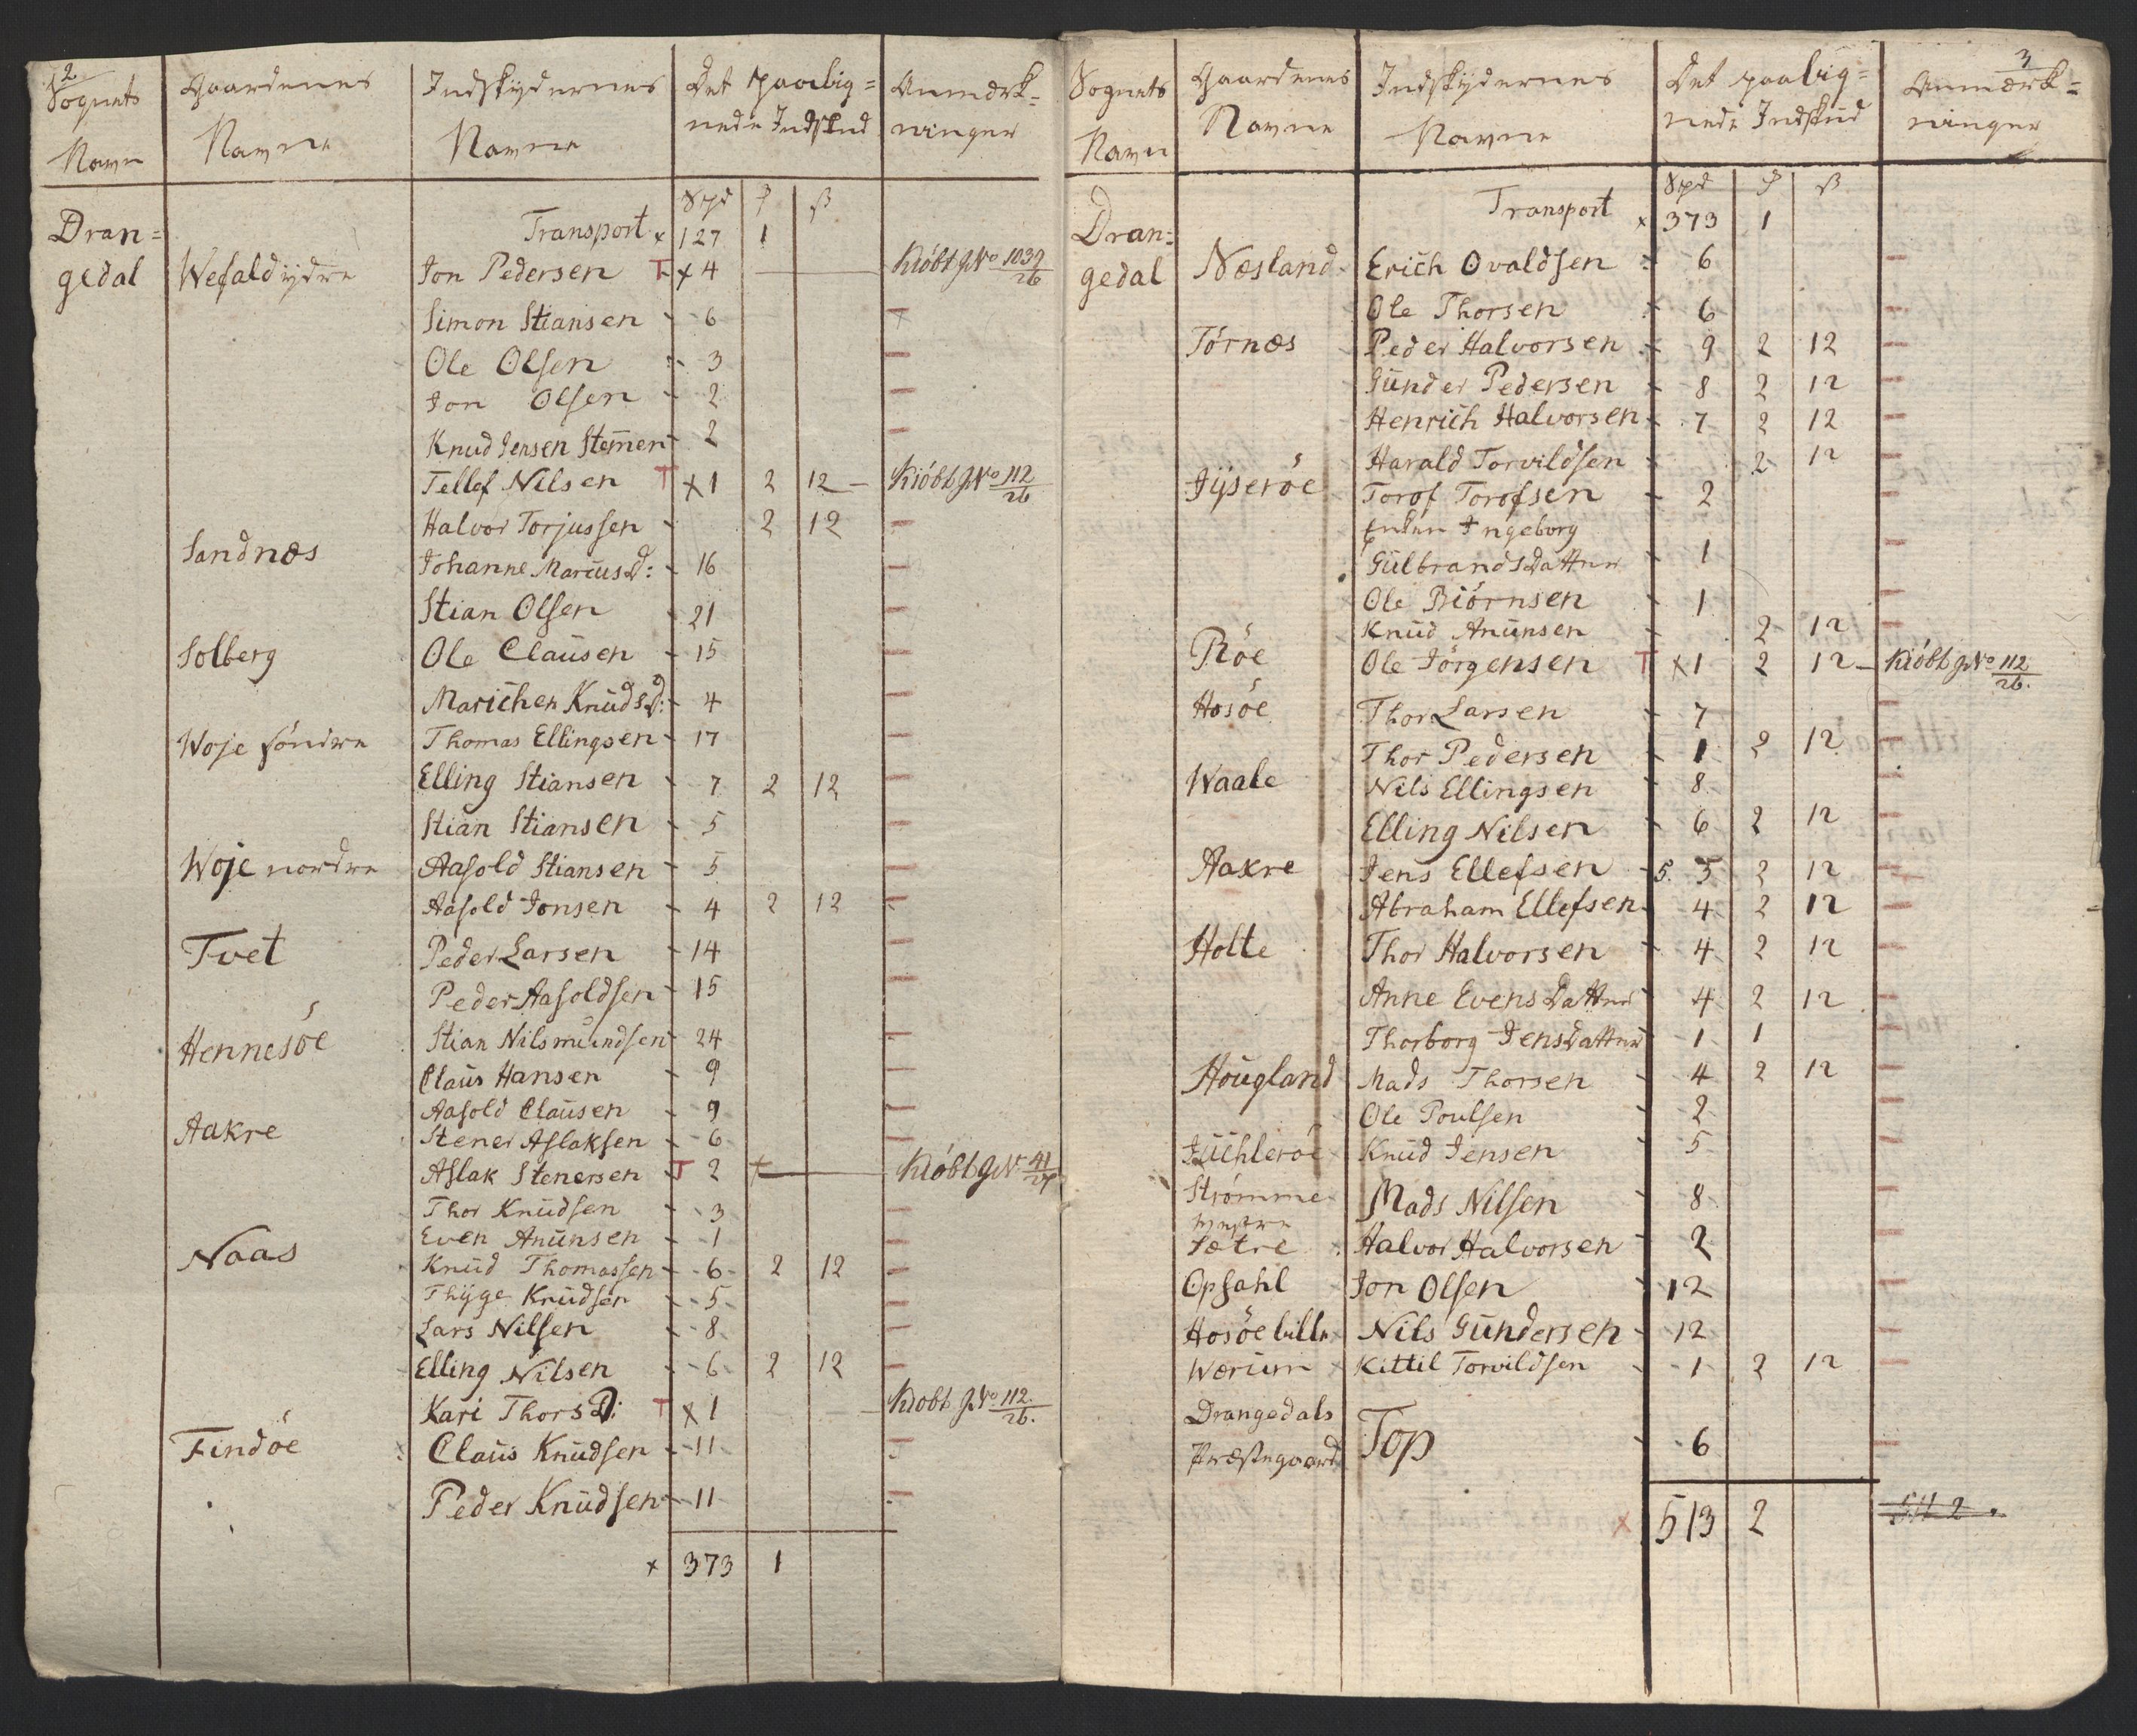 2
Sognets Navn | Gaardenes Navne | Indskydernes Navne | Det paalignede Indskud | Anmærkninger
Spd | ₰ | ß
Transport × 127 | 1
Drangedal | Wefald ydre | Jon Pedersen T × 4 | Kiöbt g No 1039/26
Simon Stiansen - 6
Ole Olsen - 3
Jon Olsen - 2
Knud Jensen Stemmen - 2
Tellef Nilsen T × 1 | 2 | 12 - Kiöbt g No 112/26
Halvor Torjussen - | 2 | 12
Sandnæs | Johanne Mariusd: - 16
Stian Olsen - 21
Solberg | Ole Clausen - 15
Marichen Knudsd: - 4
Woje söndre | Thomas Ellingsen - 17
Elling Stiansen - 7 | 2 | 12
Stian Stiansen - 5
Woje nordre | Aasold Stiansen - 5
Aasold Jonsen - 4 | 2 | 12
Tvet | Peder Larsen - 14
Peder Aasoldsen - 15
Hennesöe | Stian Nilsmundsen - 24
Claus Hansen - 9
Aasold Clausen - 9
Aakre | Stener Aslaksen - 6
Aslak Stenersen T 2 | Kiöbt g No 41/27
Thor Knudsen - 3
Even Anunsen - 1
Naas | Knud Thomassen - 6 | 2 | 12
Thyge Knudsen - 5
Lars Nilsen - 8
Elling Nilsen - 6 | 2 | 12
Kari Thorsd: T × 1 - Kiobt g No 112/26.
Findöe | Claus Knudsen - 11
Peder Knudsen - 11
× 373 | 1
3
Sognets Navn | Gaardenes Navne | Indskydernes Navne | Det paalignede Indskud | Anmærkninger
Spd | ₰ | ß
Transport × 373 | 1
Drangedal | Næsland | Erich Ovaldsen - 6
Ole Thorsen - 6
Törnæs | Peder Halvorsen - 9 | 2 | 12
Gunder Pedersen - 8 | 2 | 12
Henrich Halvorsen - 7 | 2 | 12
Harald Torvildsen | 2 | 12
Jyseröe | Torof Torofsen - 2
Enken Ingeborg
Gulbrandsdatter - 1
Ole Biörnsen - 1
Knud Anunsen - | 2 | 12
Röe | Ole Jörgensen T × 1 | 2 | 12 - Kiöbt g No 112/26.
Hosöe | Thor Larsen - 7
Thor Pedersen - 1 | 2 | 12
Waale | Nils Ellingsen - 8
Elling Nilsen - 6 | 2 | 12
Aakre | Jens Ellefsen - 5. 5 | 2 | 12
Abraham Ellefsen - 4 | 2 | 12
Holte | Thor Halvorsen - 4 | 2 | 12
Anne Evensdatter - 4 | 2 | 12
Thorborg Jensdatter - 1 | 1
Hougland | Mads Thorsen - 4 | 2 | 12
Ole Poulsen - 2
Juchleröe | Knud Jensen - 5
Strömme vestre | Mads Nilsen - 8
Sætre | Halvor Halvorsen - 2
Opsahl | Jon Olsen - 12
Hosöe lille | Nils Gundersen - 12
Wærum | Kittil Torvildsen - 1 | 2 | 12
Drangedals
Præstegaard | Top - 6
× 513 | 2